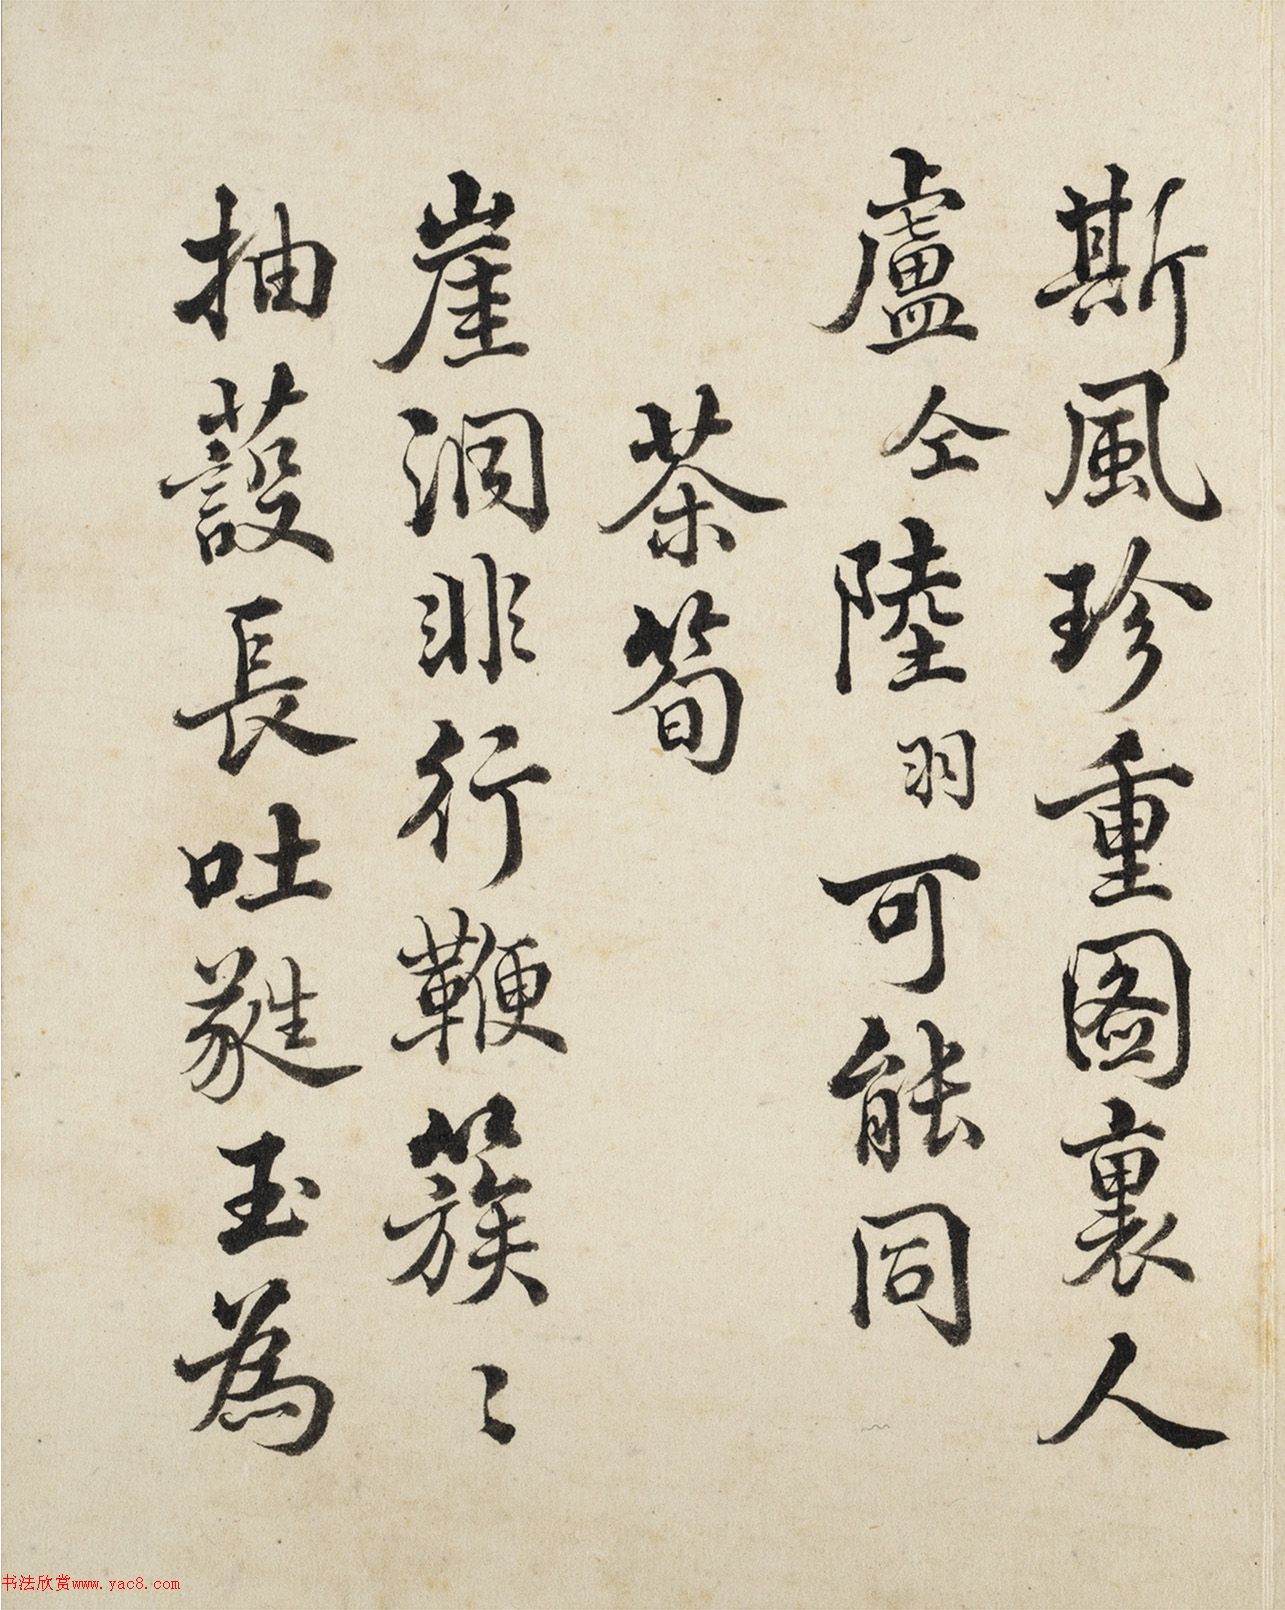 斯風珍重圖裏人
盧仝陸羽可能同
茶筍
崖洞非行鞭簇〻
抽蔎長吐蕤玉為
书法欣赏www.yac8.com